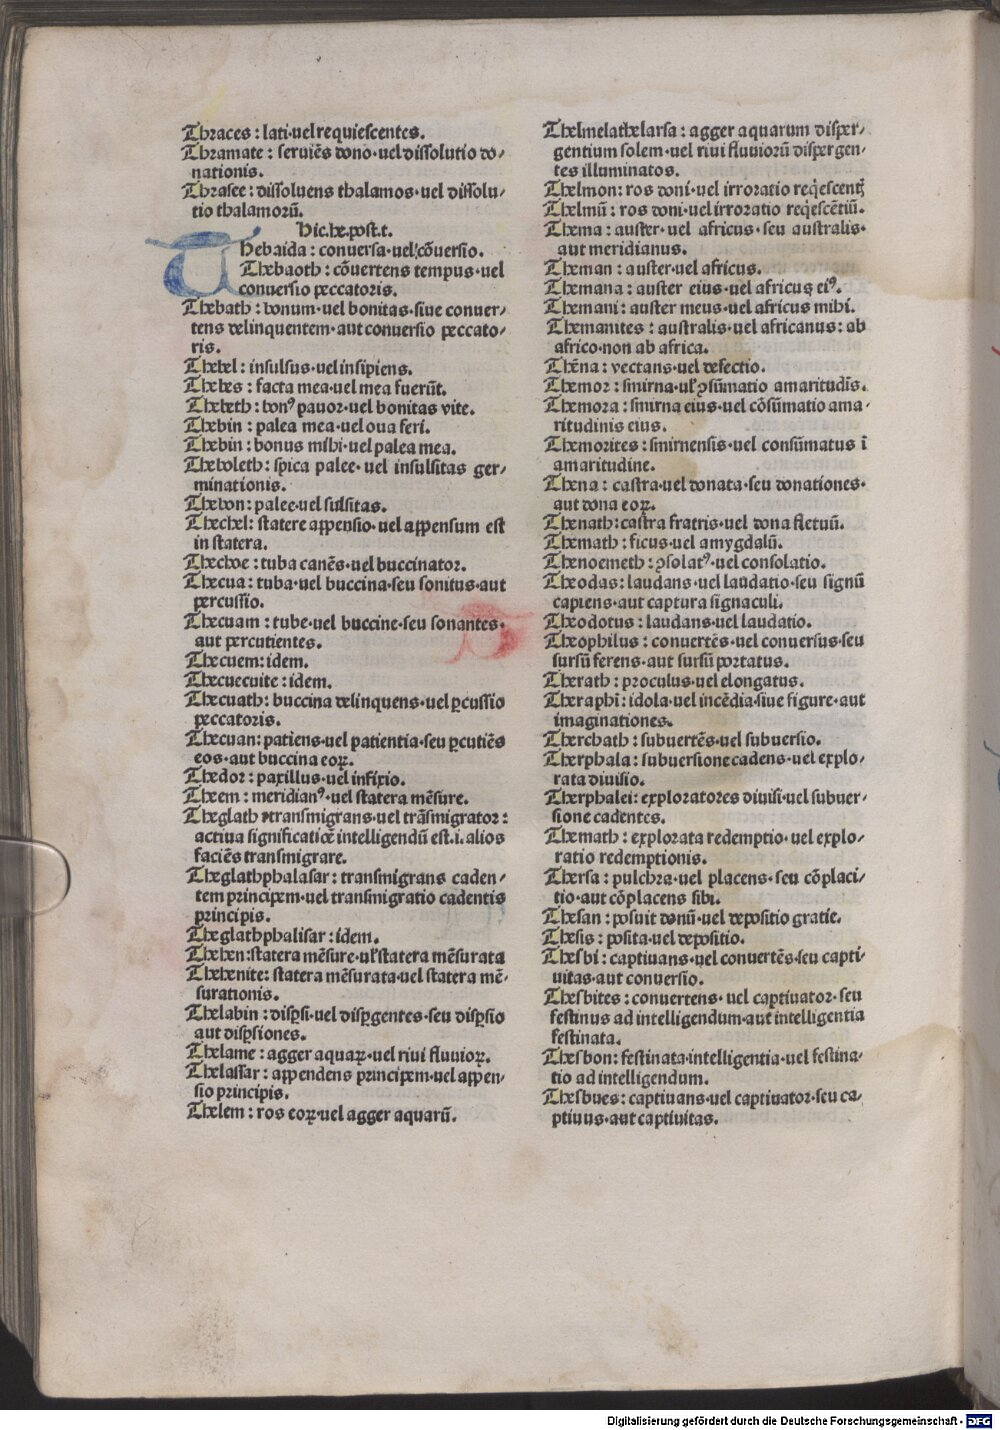 Thraces : lati·uel requiescentes.
Thramate : seruiēs dono·uel dissolutio do⸗
nationis.
Thrasee : dissoluens thalamos·uel dissolu⸗
tio thalamorū.
Hic.he.post.t.
Thebaida : conuersa·uel cōuersio.
Thebaoth : cōuertens tempus·uel
conuersio peccatoris.
Thebath : bonum·uel bonitas·siue conuer⸗
tens delinquentem·aut conuersio peccato⸗
ris.
Thebel : insulsus·uel insipiens.
Thebes : facta mea·uel mea fuerūt.
Thebeth : bonꝰ pauor·uel bonitas vite.
Thebin : palea mea·uel oua feri.
Thebin : bonus mihi·uel palea mea.
Theboleth : spica palee·uel insulsitas ger⸗
minationis.
Thebon : palee·uel sulsitas.
Thechel: statere appensio·uel appensum est
in statera.
Thechoe : tuba canēs·uel buccinator.
Thecua : tuba·uel buccina·seu sonitus·aut
percussio.
Thecuam : tube·uel buccine·seu sonantes·
aut percutientes.
Thecuem: idem.
Thecuecuite : idem.
Thecuath: buccina delinquens·uel ꝑcussio
peccatoris.
Thecuan: patiens·uel patientia·seu ꝑcutiēs
eos·aut buccina eoꝝ.
Thedor : paxillus·uel infixio.
Theem : meridianꝰ·uel statera mēsure.
Theglath : transmigrans·uel trāsmigrator :
actiua significatiōe intelligendū est.i.alios
faciēs transmigrare.
Theglathphalasar : transmigrans caden⸗
tem principem·uel transmigratio cadentis
principis.
Theglathphalisar : idem.
Thehen:statera mēsure·uꝉ statera mēsurata
Thehenite: statera mēsurata·uel statera mē⸗
surationis.
Thelabin : disꝑsi·uel disꝑgentes·seu disꝑsio
aut disꝑsiones.
Thelame : agger aquaꝝ·uel riui fluuioꝝ.
Thelassar : appendens principem·uel appen⸗
sio principis.
Thelem : ros eoꝝ·uel agger aquarū.
Thelmelathelarsa : agger aquarum disper⸗
gentium solem·uel riui fluuiorū dispergen⸗
tes illuminatos.
Thelmon: ros doni·uel irroratio reqescentꝭ
Thelmū : ros doni·uel irroratio reqescētiū.
Thema : auster·uel africus·seu australis·
aut meridianus.
Theman : auster·uel africus.
Themana : auster eius·uel africus eiꝰ.
Themani : auster meus·uel africus mihi.
Themanites : australis·uel africanus: ab
africo·non ab africa.
Thēna : vectans·uel defectio.
Themor : smirna·uꝉ ꝯsūmatio amaritudīs.
Themora : smirna eius·uel cōsūmatio ama⸗
ritudinis eius.
Themorites : smirnensis·uel consūmatus ī
amaritudine.
Thena : castra·uel donata·seu donationes·
aut dona eoꝝ.
Thenath:castra fratris·uel dona fletuū.
Themath : ficus·uel amygdalū.
Thenoemeth : ꝯsolatꝰ·uel consolatio.
Theodas: laudans·uel laudatio·seu signū
capiens·aut captura signaculi.
Theodotus : laudans·uel laudatio.
Theophilus : conuertēs·uel conuersus·seu
sursū ferens·aut sursū portatus.
Therath : proculus·uel elongatus.
Theraphī : idola·uel incēdia·siue figure·aut
imaginationes.
Therchath : subuertēs·uel subuersio.
Therphala : subuersione cadens·uel explo⸗
rata diuisio.
Therphalei: exploratores diuisi·uel subuer⸗
sione cadentes.
Themath : explorata redemptio·uel explo⸗
ratio redemptionis.
Thersa : pulchra·uel placens·seu cōplaci⸗
tio·aut cōplacens sibi.
Thesan : posuit donū·uel depositio gratie.
Thesis : posita·uel depositio.
Thesbi : captiuans·uel conuertēs·seu capti⸗
uitas·aut conuersio.
Thesbites : conuertens·uel captiuator·seu
festinus ad intelligendum·aut intelligentia
festinata.
Thesbon: festinata·intelligentia·uel festina⸗
tio ad intelligendum.
Thesbues : captiuans·uel captiuator·seu ca⸗
ptiuus·aut captiuitas.
Digitalisierung gefördert durch die Deutsche Forschungsgemeinschaft - DFG